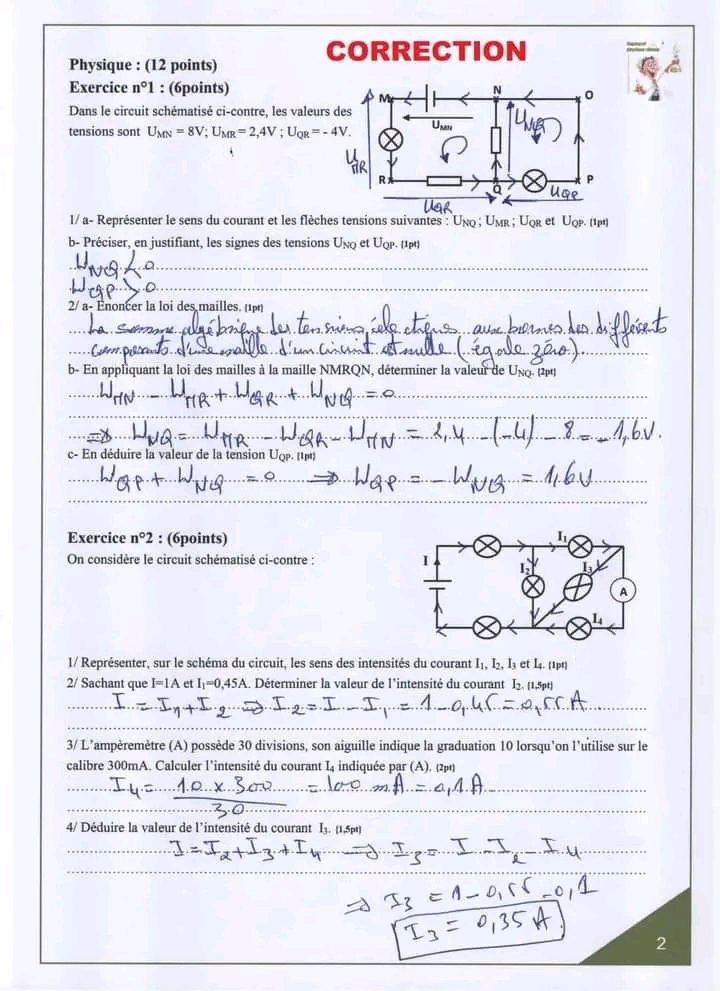 CORRECTION
Physique : (12 points)
Exercice n°1 : (6points)
Dans le circuit schématisé ci-contre, les valeurs des
tensions sont U_MN = 8V; U_MR = 2,4V ; U_QR = - 4V.
M N O
U_MN U_NQ
U_MR
R Q P
U_QR U_QP
1/ a- Représenter le sens du courant et les flèches tensions suivantes : U_NQ ; U_MR ; U_QR et U_QP. (1pt)
b- Préciser, en justifiant, les signes des tensions U_NQ et U_QP. (1pt)
U_NQ < 0
U_QP > 0
2/ a- Enoncer la loi des mailles. (1pt)
La somme algébrique des tensions électriques aux bornes des différents
composants d'une maille d'un circuit est nulle (égale zéro).
b- En appliquant la loi des mailles à la maille NMRQN, déterminer la valeur de U_NQ. (2pt)
U_MN - U_MR + U_QR + U_NQ = 0
⇒ U_NQ = U_MR - U_QR - U_MN = 2,4 - (-4) - 8 = - 1,6V.
c- En déduire la valeur de la tension U_QP. (1pt)
U_QP + U_NQ = 0 ⇒ U_QP = - U_NQ = 1,6V
Exercice n°2 : (6points)
On considère le circuit schématisé ci-contre :
I I₁ I₂ I₃ A I₄
1/ Représenter, sur le schéma du circuit, les sens des intensités du courant I₁, I₂, I₃ et I₄. (1pt)
2/ Sachant que I=1A et I₁=0,45A. Déterminer la valeur de l'intensité du courant I₂. (1,5pt)
I = I₁ + I₂ ⇒ I₂ = I - I₁ = 1 - 0,45 = 0,55 A
3/ L'ampèremètre (A) possède 30 divisions, son aiguille indique la graduation 10 lorsqu'on l'utilise sur le
calibre 300mA. Calculer l'intensité du courant I₄ indiquée par (A). (2pt)
I₄ = 10 x 300 / 30 = 100 mA = 0,1 A
4/ Déduire la valeur de l'intensité du courant I₃. (1,5pt)
I = I₂ + I₃ + I₄ ⇒ I₃ = I - I₂ - I₄
⇒ I₃ = 1 - 0,55 - 0,1
I₃ = 0,35 A.
2